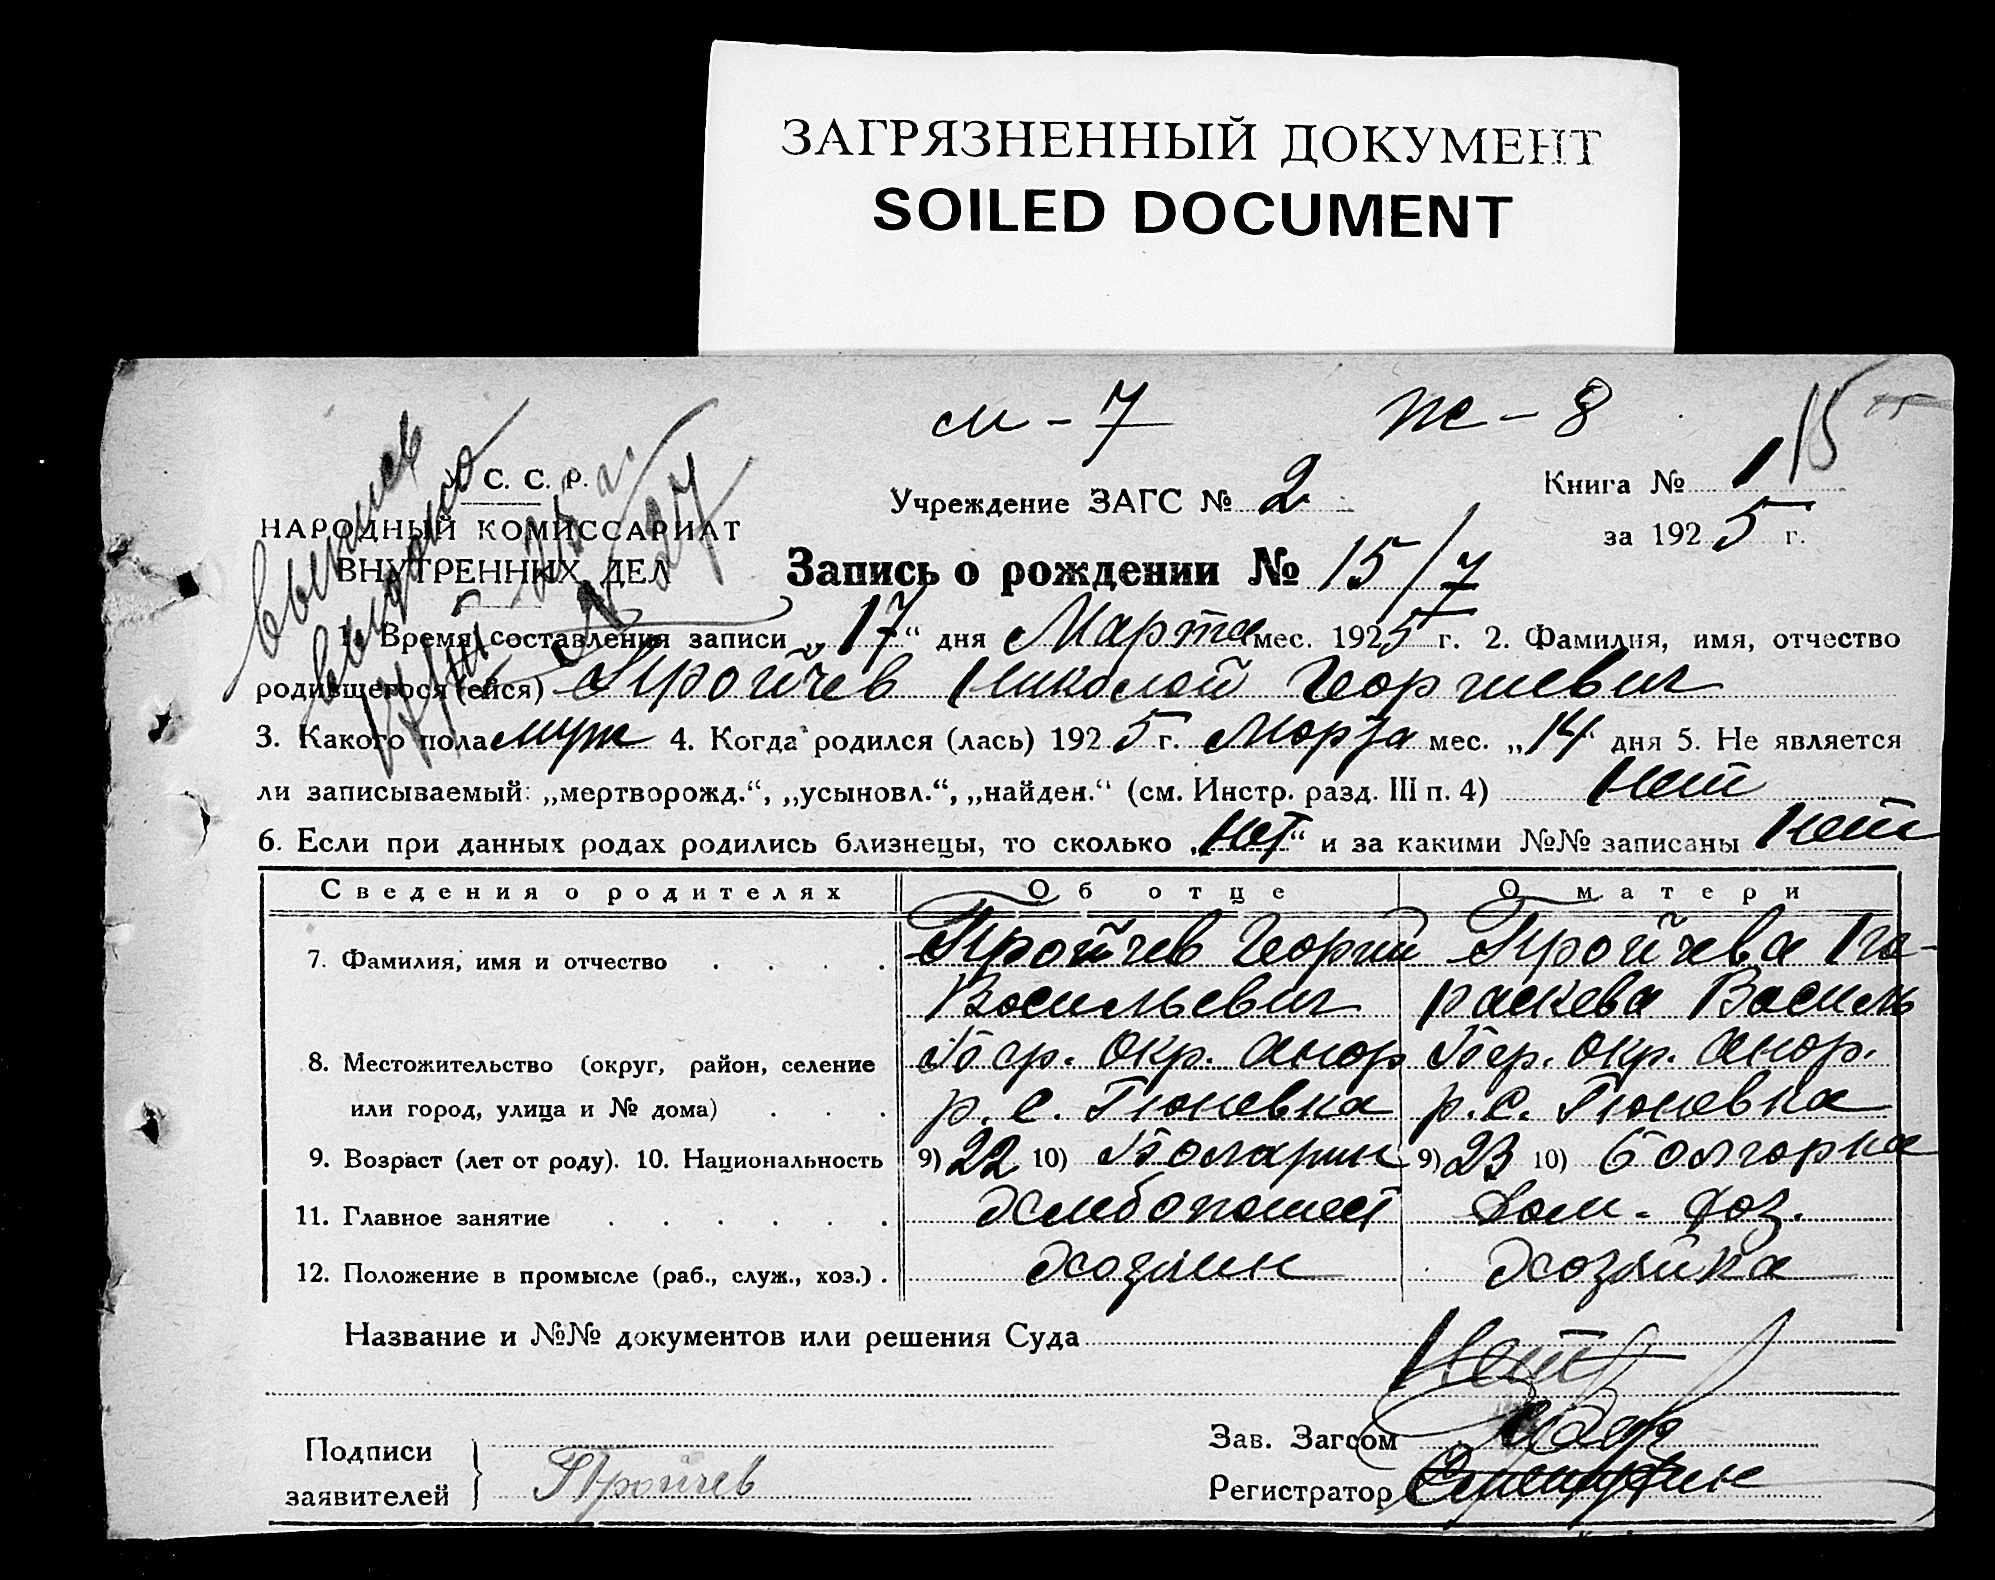 ЗАГРЯЗНЕННЫЙ ДОКУМЕНТ
SOILED DOCUMENT
м - 7 ж - 8 15
С. С. Р.
НАРОДНЫЙ КОМИССАРИАТ
ВНУТРЕННИХ ДЕЛ
Выпись
выдана
Учреждение ЗАГС № 2
Книга № 1
за 1925 г.
Запись о рождении № 15/7
1. Время составления записи „17“ дня Марта мес. 1925 г. 2. Фамилия, имя, отчество
родившегося (ейся) Тройчев Николай Георгиевич
3. Какого пола муж 4. Когда родился (лась) 1925 г. Марта мес. „14“ дня 5. Не является
ли записываемый: „мертворожд.“, „усыновл.“, „найден.“ (см. Инстр. разд. III п. 4) Нет
6. Если при данных родах родились близнецы, то сколько „Нет“ и за какими №№ записаны Нет
Сведения о родителях Об отце О матери
7. Фамилия, имя и отчество . . . . Тройчев Георгий Тройчева Па-
Васильевич раскева Василь
8. Местожительство (округ, район, селение Бер. Окр. Анор. Бер. Окр. Анор.
или город, улица и № дома) . . . р. с. Гюневка р. с. Гюневка
9. Возраст (лет от роду). 10. Национальность 9) 22 10) Боларин 9) 23 10) Болгорка
11. Главное занятие . . . . . . Хлебопашест Дом. - Хоз.
12. Положение в промысле (раб., служ., хоз.) . Хозяин Хозяйка
Название и №№ документов или решения Суда Нет
Подписи
заявителей } Тройчев
Зав. Загсом
Регистратор